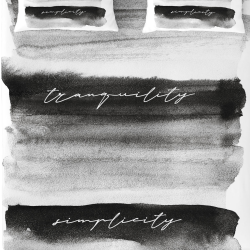 simplicity simplicity
tranquility
simplicity